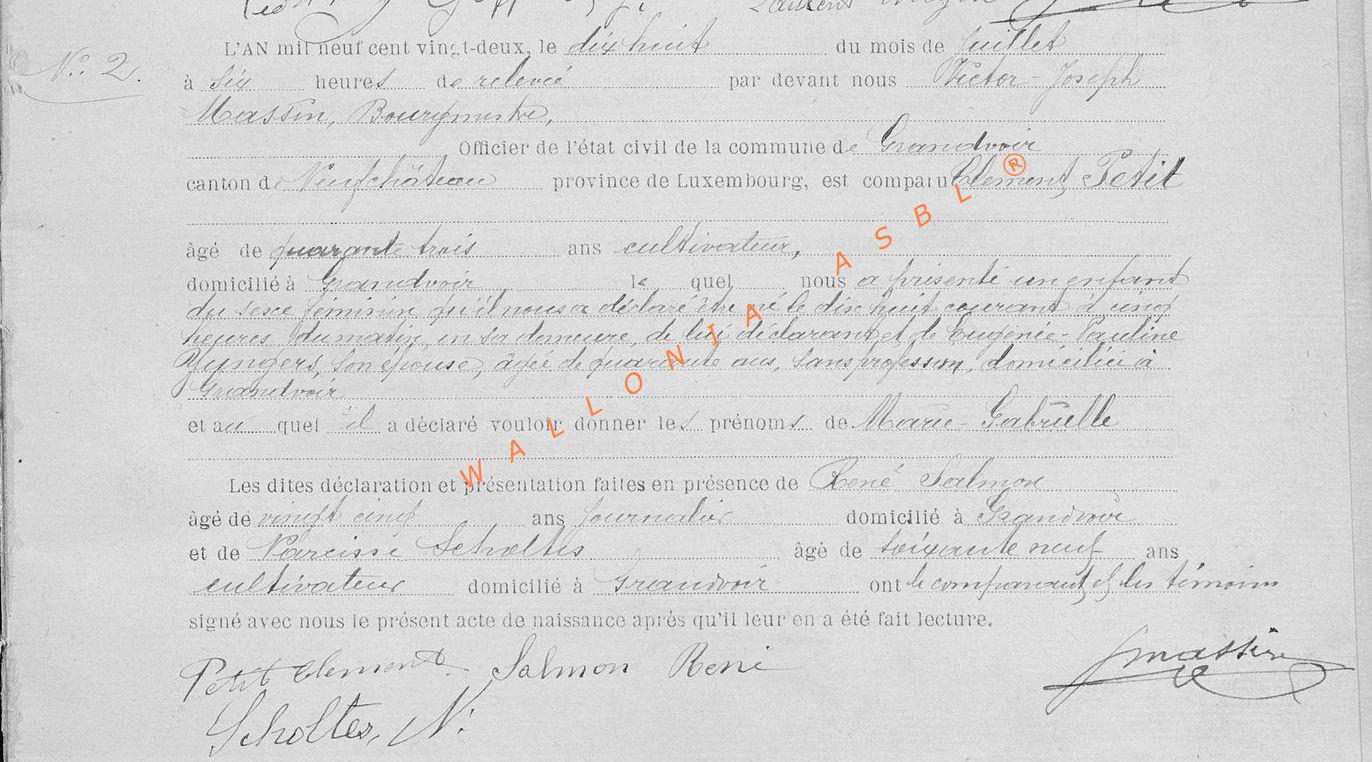 N° 2.
L'AN mil neuf cent vingt-deux, le dix huit du mois de Juillet
à six heures de relevée par devant nous Victor-Joseph
Massin, Bourgmestre,
Officier de l'état civil de la commune de Grandvoir
canton de Neufchâteau province de Luxembourg, est comparu Clément Petit
âgé de quarante trois ans cultivateur,
domicilié à Grandvoir le quel nous a présenté un enfant
du sexe féminin qu'il nous a déclaré être né le dix huit courant à cinq
heures du matin, en sa demeure, de lui déclarant et de Eugénie-Pauline
son épouse, âgée de quarante ans, sans profession, domiciliée à
Grandvoir
et au quel il a déclaré vouloir donner les prénoms de Marie-Gabrielle
Les dites déclaration et présentation faites en présence de René Salmon
âgé de vingt cinq ans journalier domicilié à Grandvoir
et de Narcisse Scholtes âgé de soixante neuf ans
cultivateur domicilié à Grandvoir ont le comparant et les témoins
signé avec nous le présent acte de naissance après qu'il leur en a été fait lecture.
Petit Clément Salmon René Jmassin
Scholtes, N.
WALLONIA ASBL ®